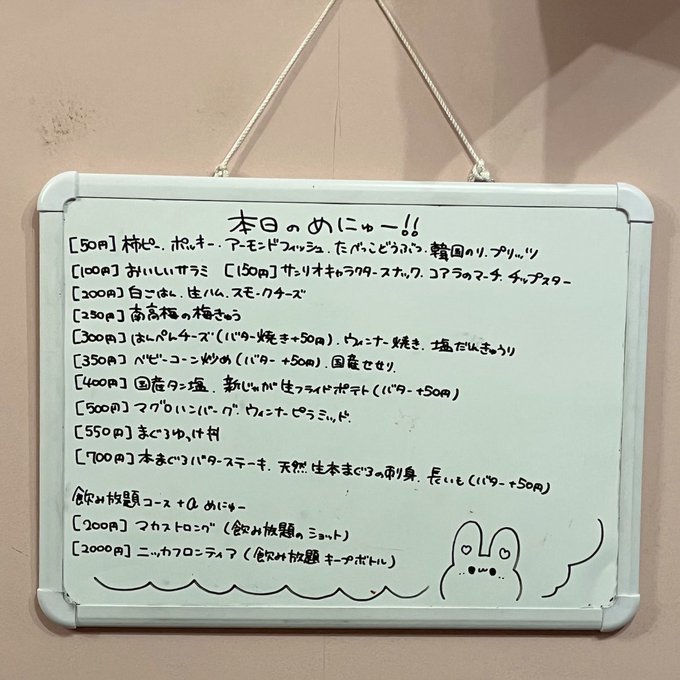 本日のめにゅー!!
[50円] 柿ピー、ポッキー、アーモンドフィッシュ、たべっこどうぶつ、韓国のり、プリッツ
[100円] おいしいサラミ [150円] サンリオキャラクタースナック、コアラのマーチ、チップスター
[200円] 白ごはん、生ハム、スモークチーズ
[250円] 南高梅の梅きゅう
[300円] はんぺんチーズ(バター焼き+50円)、ウィンナー焼き、塩だれきゅうり
[350円] ベビーコーン炒め(バター +50円)、国産せせり、
[400円] 国産タン塩、新じゃが生フライドポテト(バター+50円)
[500円] マグロハンバーグ、ウィンナーピラミッド、
[550円] まぐろゆっけ丼
[700円] 本まぐろバターステーキ、天然生本まぐろの刺身、長いも(バター+50円)
飲み放題コース +α めにゅー
[200円] マカストロング (飲み放題のショット)
[2000円] ニッカフロンティア (飲み放題キープボトル)